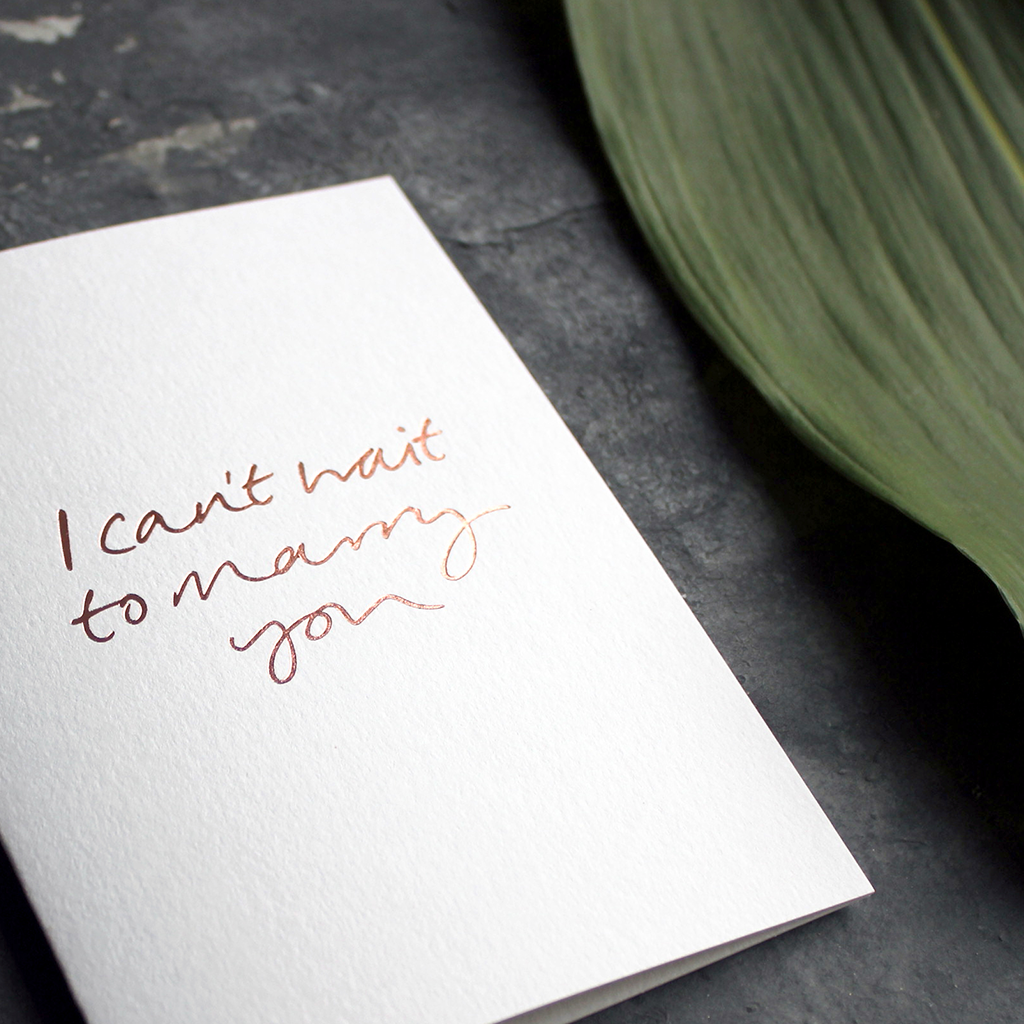 I can't wait
to marry
you